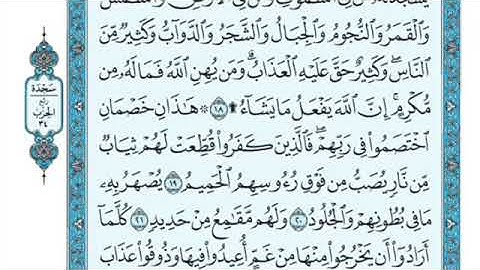 يَسْجُدُ لَهُۥ مَن فِى ٱلسَّمَٰوَٰتِ وَمَن فِى ٱلْأَرْضِ وَٱلشَّمْسُ
وَٱلْقَمَرُ وَٱلنُّجُومُ وَٱلْجِبَالُ وَٱلشَّجَرُ وَٱلدَّوَآبُّ وَكَثِيرٌ مِّنَ
ٱلنَّاسِ ۖ وَكَثِيرٌ حَقَّ عَلَيْهِ ٱلْعَذَابُ ۗ وَمَن يُهِنِ ٱللَّهُ فَمَا لَهُۥ مِن
مُّكْرِمٍ ۚ إِنَّ ٱللَّهَ يَفْعَلُ مَا يَشَآءُ ۩ ١٨ ۞ هَٰذَانِ خَصْمَانِ
ٱخْتَصَمُوا۟ فِى رَبِّهِمْ ۖ فَٱلَّذِينَ كَفَرُوا۟ قُطِّعَتْ لَهُمْ ثِيَابٌ
مِّن نَّارٍ يُصَبُّ مِن فَوْقِ رُءُوسِهِمُ ٱلْحَمِيمُ ١٩ يُصْهَرُ بِهِۦ
مَا فِى بُطُونِهِمْ وَٱلْجُلُودُ ٢٠ وَلَهُم مَّقَٰمِعُ مِنْ حَدِيدٍ ٢١ كُلَّمَآ
أَرَادُوٓا۟ أَن يَخْرُجُوا۟ مِنْهَا مِنْ غَمٍّ أُعِيدُوا۟ فِيهَا وَذُوقُوا۟ عَذَابَ
سَجْدَة
رُبع
الحِزب
٣٤